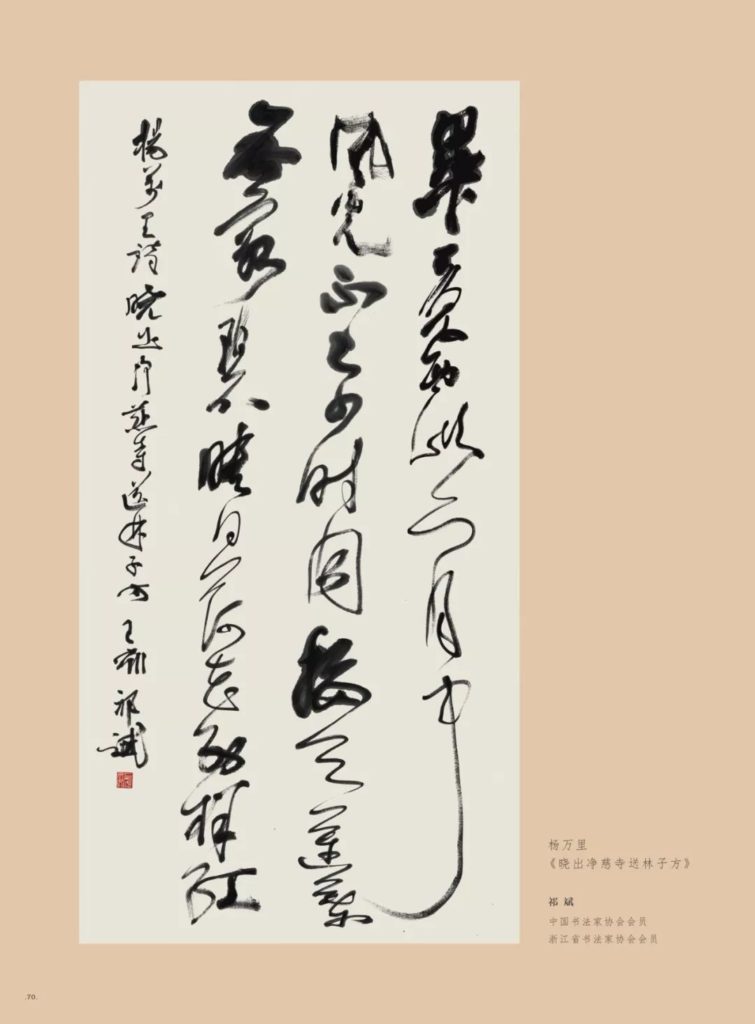 畢竟西湖六月中
風光不与四时同接天蓮葉
無窮碧映日荷花别樣紅
楊萬里詩曉出净慈寺送林子方 祁斌
杨万里
《晓出净慈寺送林子方》
祁 斌
中国书法家协会会员
浙江省书法家协会会员
.70.